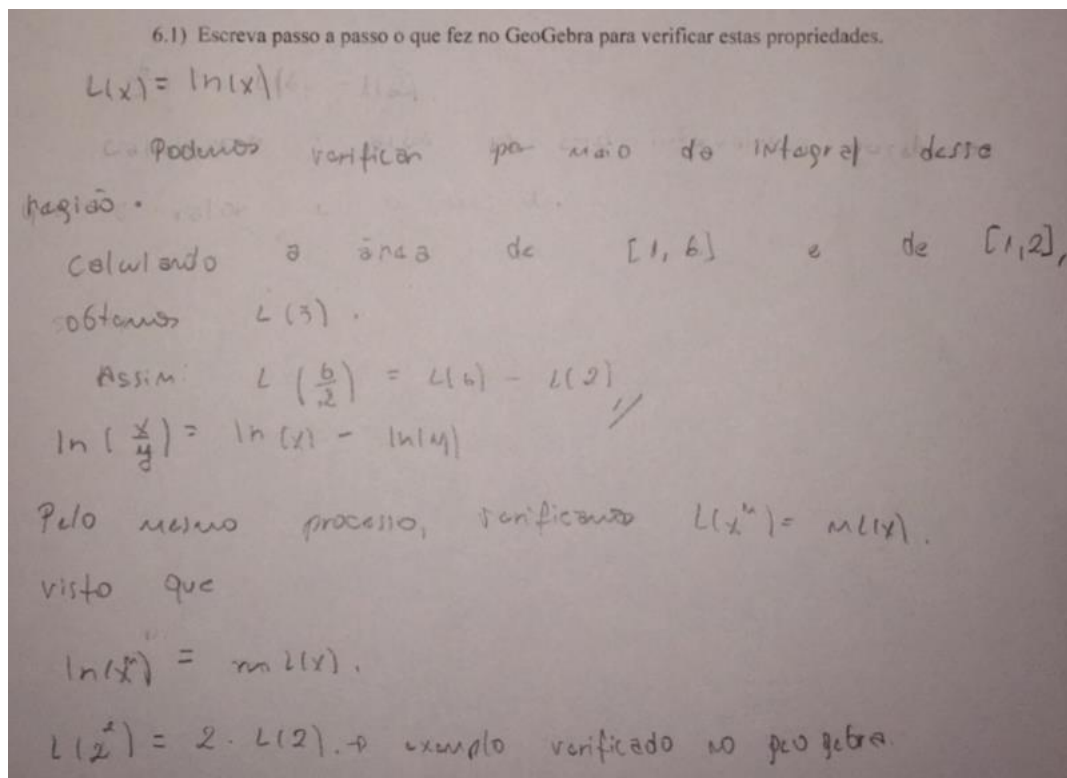 6.1) Escreva passo a passo o que fez no GeoGebra para verificar estas propriedades.
L(x) = ln(x)
Podemos verificar por meio da integral dessa
região.
Calculando a área de [1, 6] e de [1,2],
obtemos L(3).
Assim: L(6/2) = L(6) - L(2) //
ln(x/y) = ln(x) - ln(y)
Pelo mesmo processo, verificamos L(x^n) = nL(x).
visto que
ln(x^n) = n L(x).
L(2^2) = 2 · L(2). → exemplo verificado no geogebra.